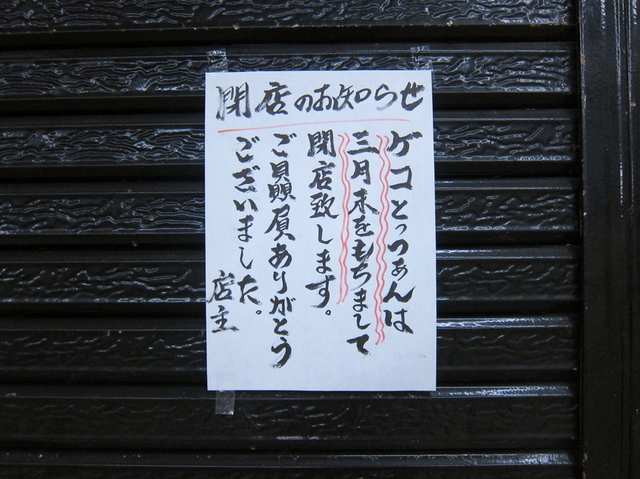 閉店のお知らせ
ゲコとっつぁんは
三月末をもちまして
閉店致します。
ご贔屓ありがとう
ございました。
店主